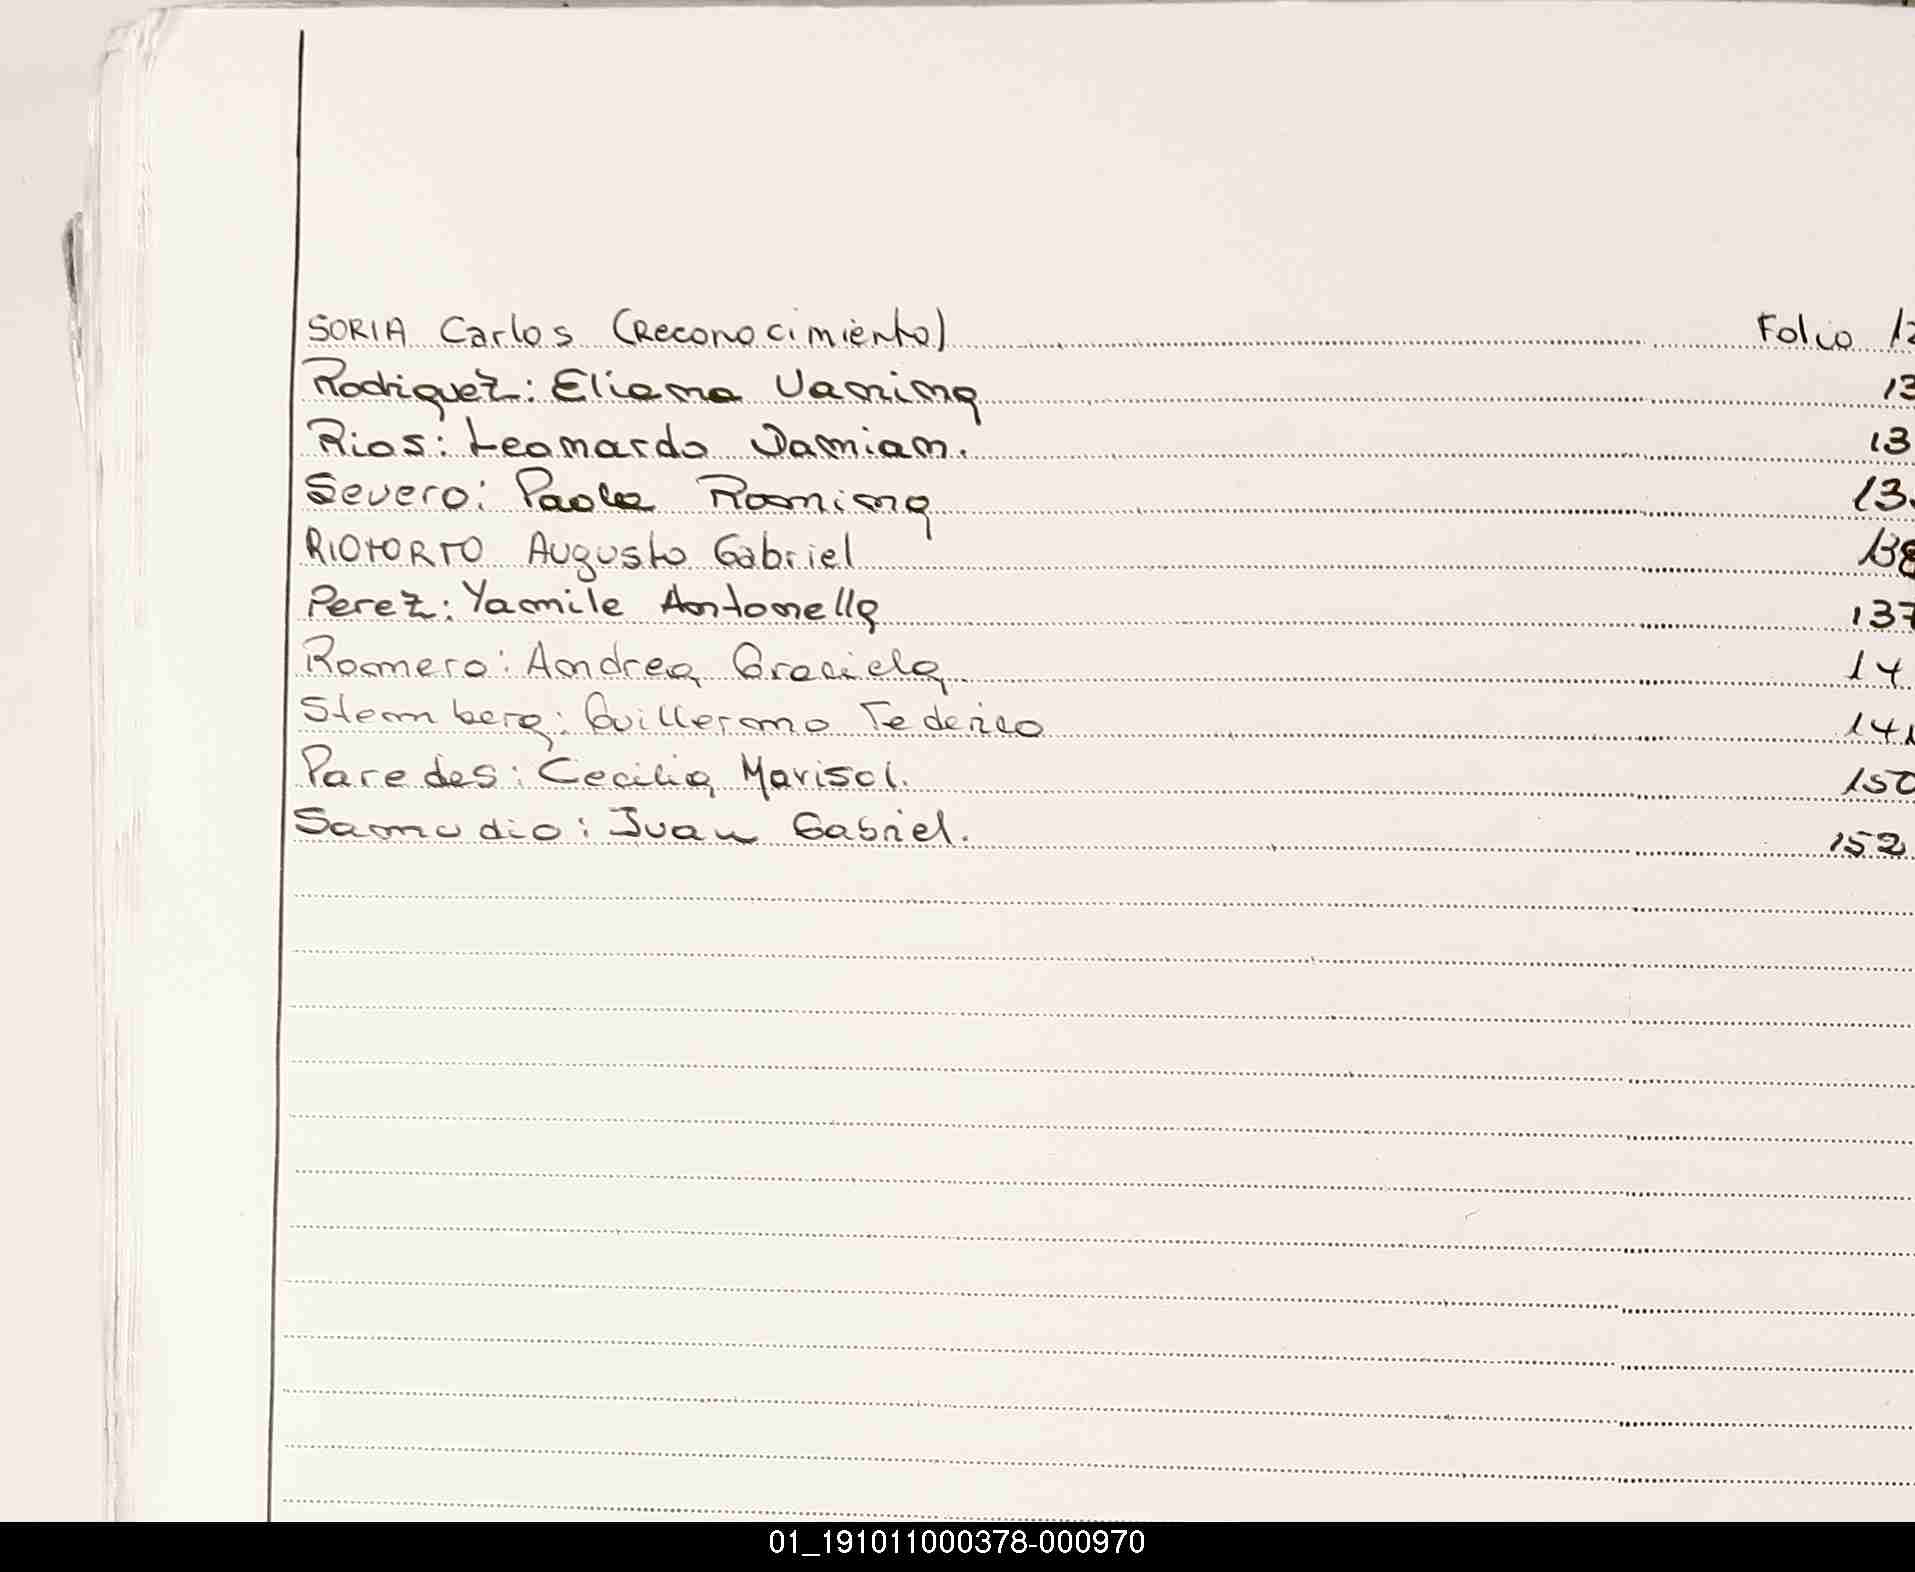 SORIA Carlos (Reconocimiento) Folio 12
Rodriguez: Eliana Vanina 13
Rios: Leonardo Damian. 13
Severo: Paola Romina 13
RIOTORTO Augusto Gabriel 138
Perez: Yamile Antonella 137
Romero: Andrea Graciela. 14
Sternberg: Guillermo Federico 141
Paredes: Cecilia Marisol. 150
Samudio: Juan Gabriel. 152
01_191011000378-000970